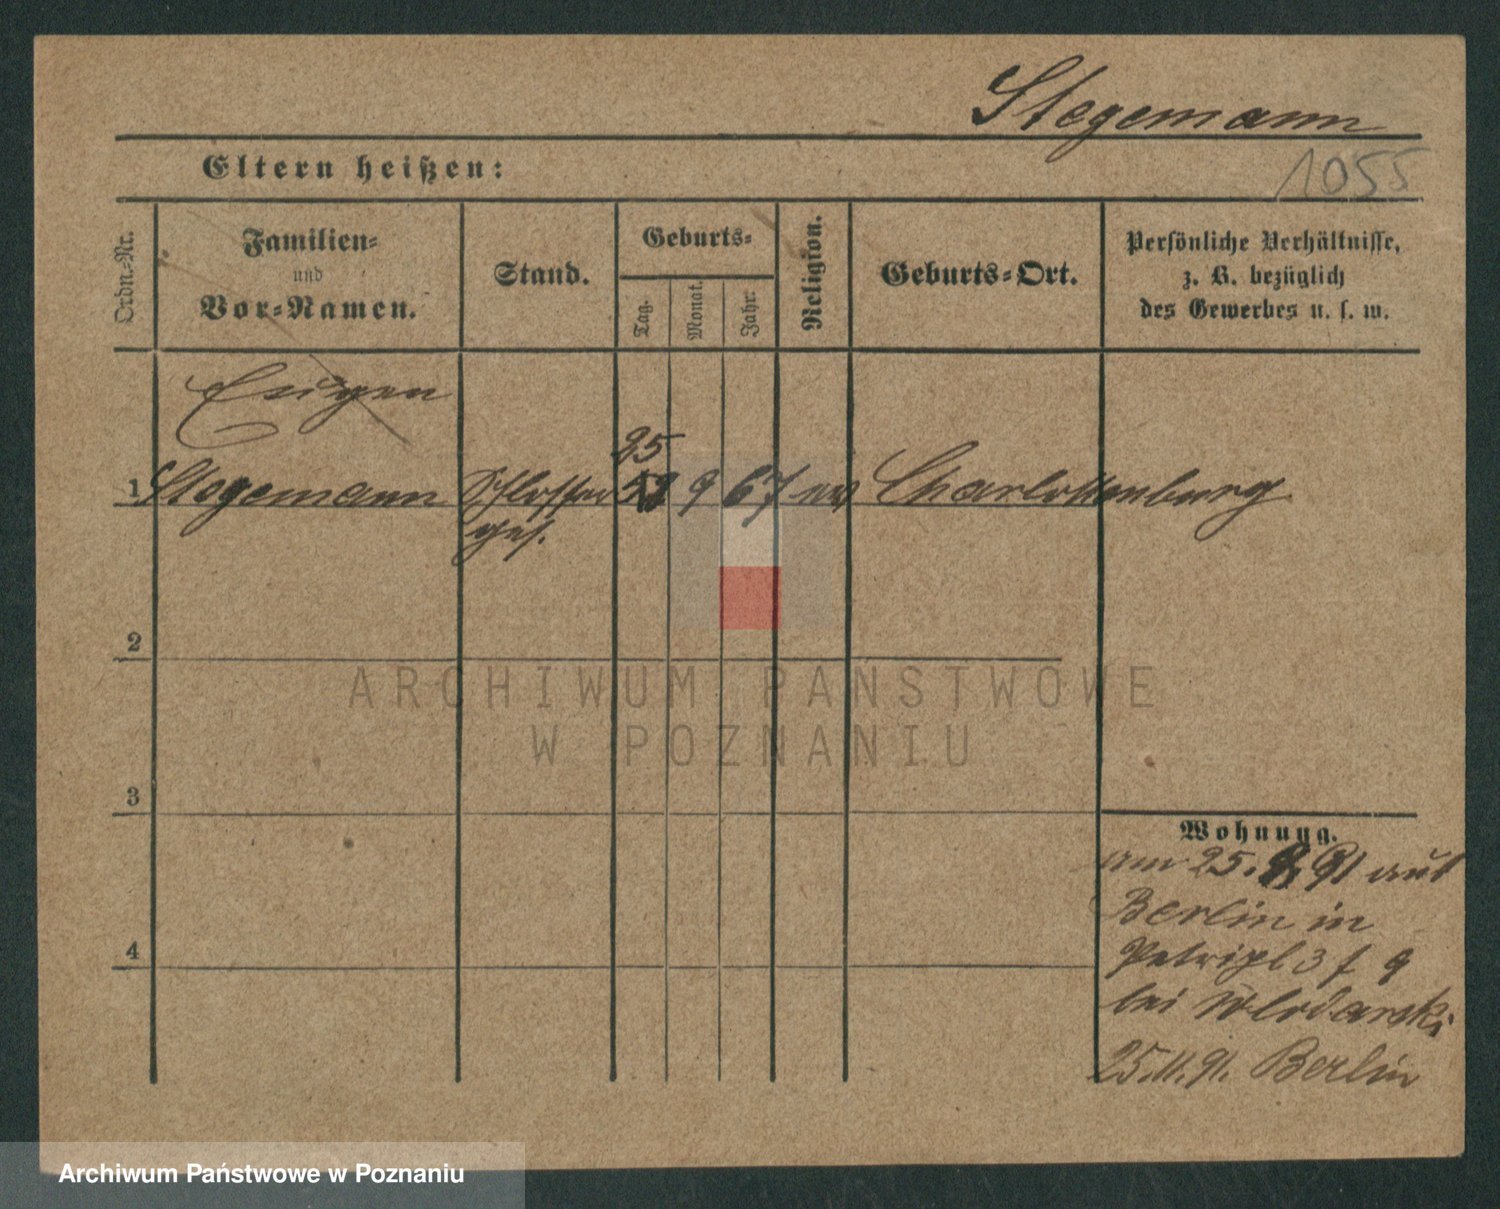 Stegemann
1055
Eltern heißen:
Ordn.-Nr.
Familien-
und
Vor-Namen.
Stand.
Geburts-
Tag.
Monat.
Jahr.
Religion.
Geburts-Ort.
Persönliche Verhältnisse,
z. B. bezüglich
des Gewerbes u. s. w.
Eugen
25
1 Stegemann Schlosser 9 67 Charlottenburg
ges.
2
3
4
Wohnung.
am 25. 91 aus
Berlin in
Petripl 3 f 9
bei Wlodarski
25.11.91. Berlin
ARCHIWUM PAŃSTWOWE
W POZNANIU
Archiwum Państwowe w Poznaniu